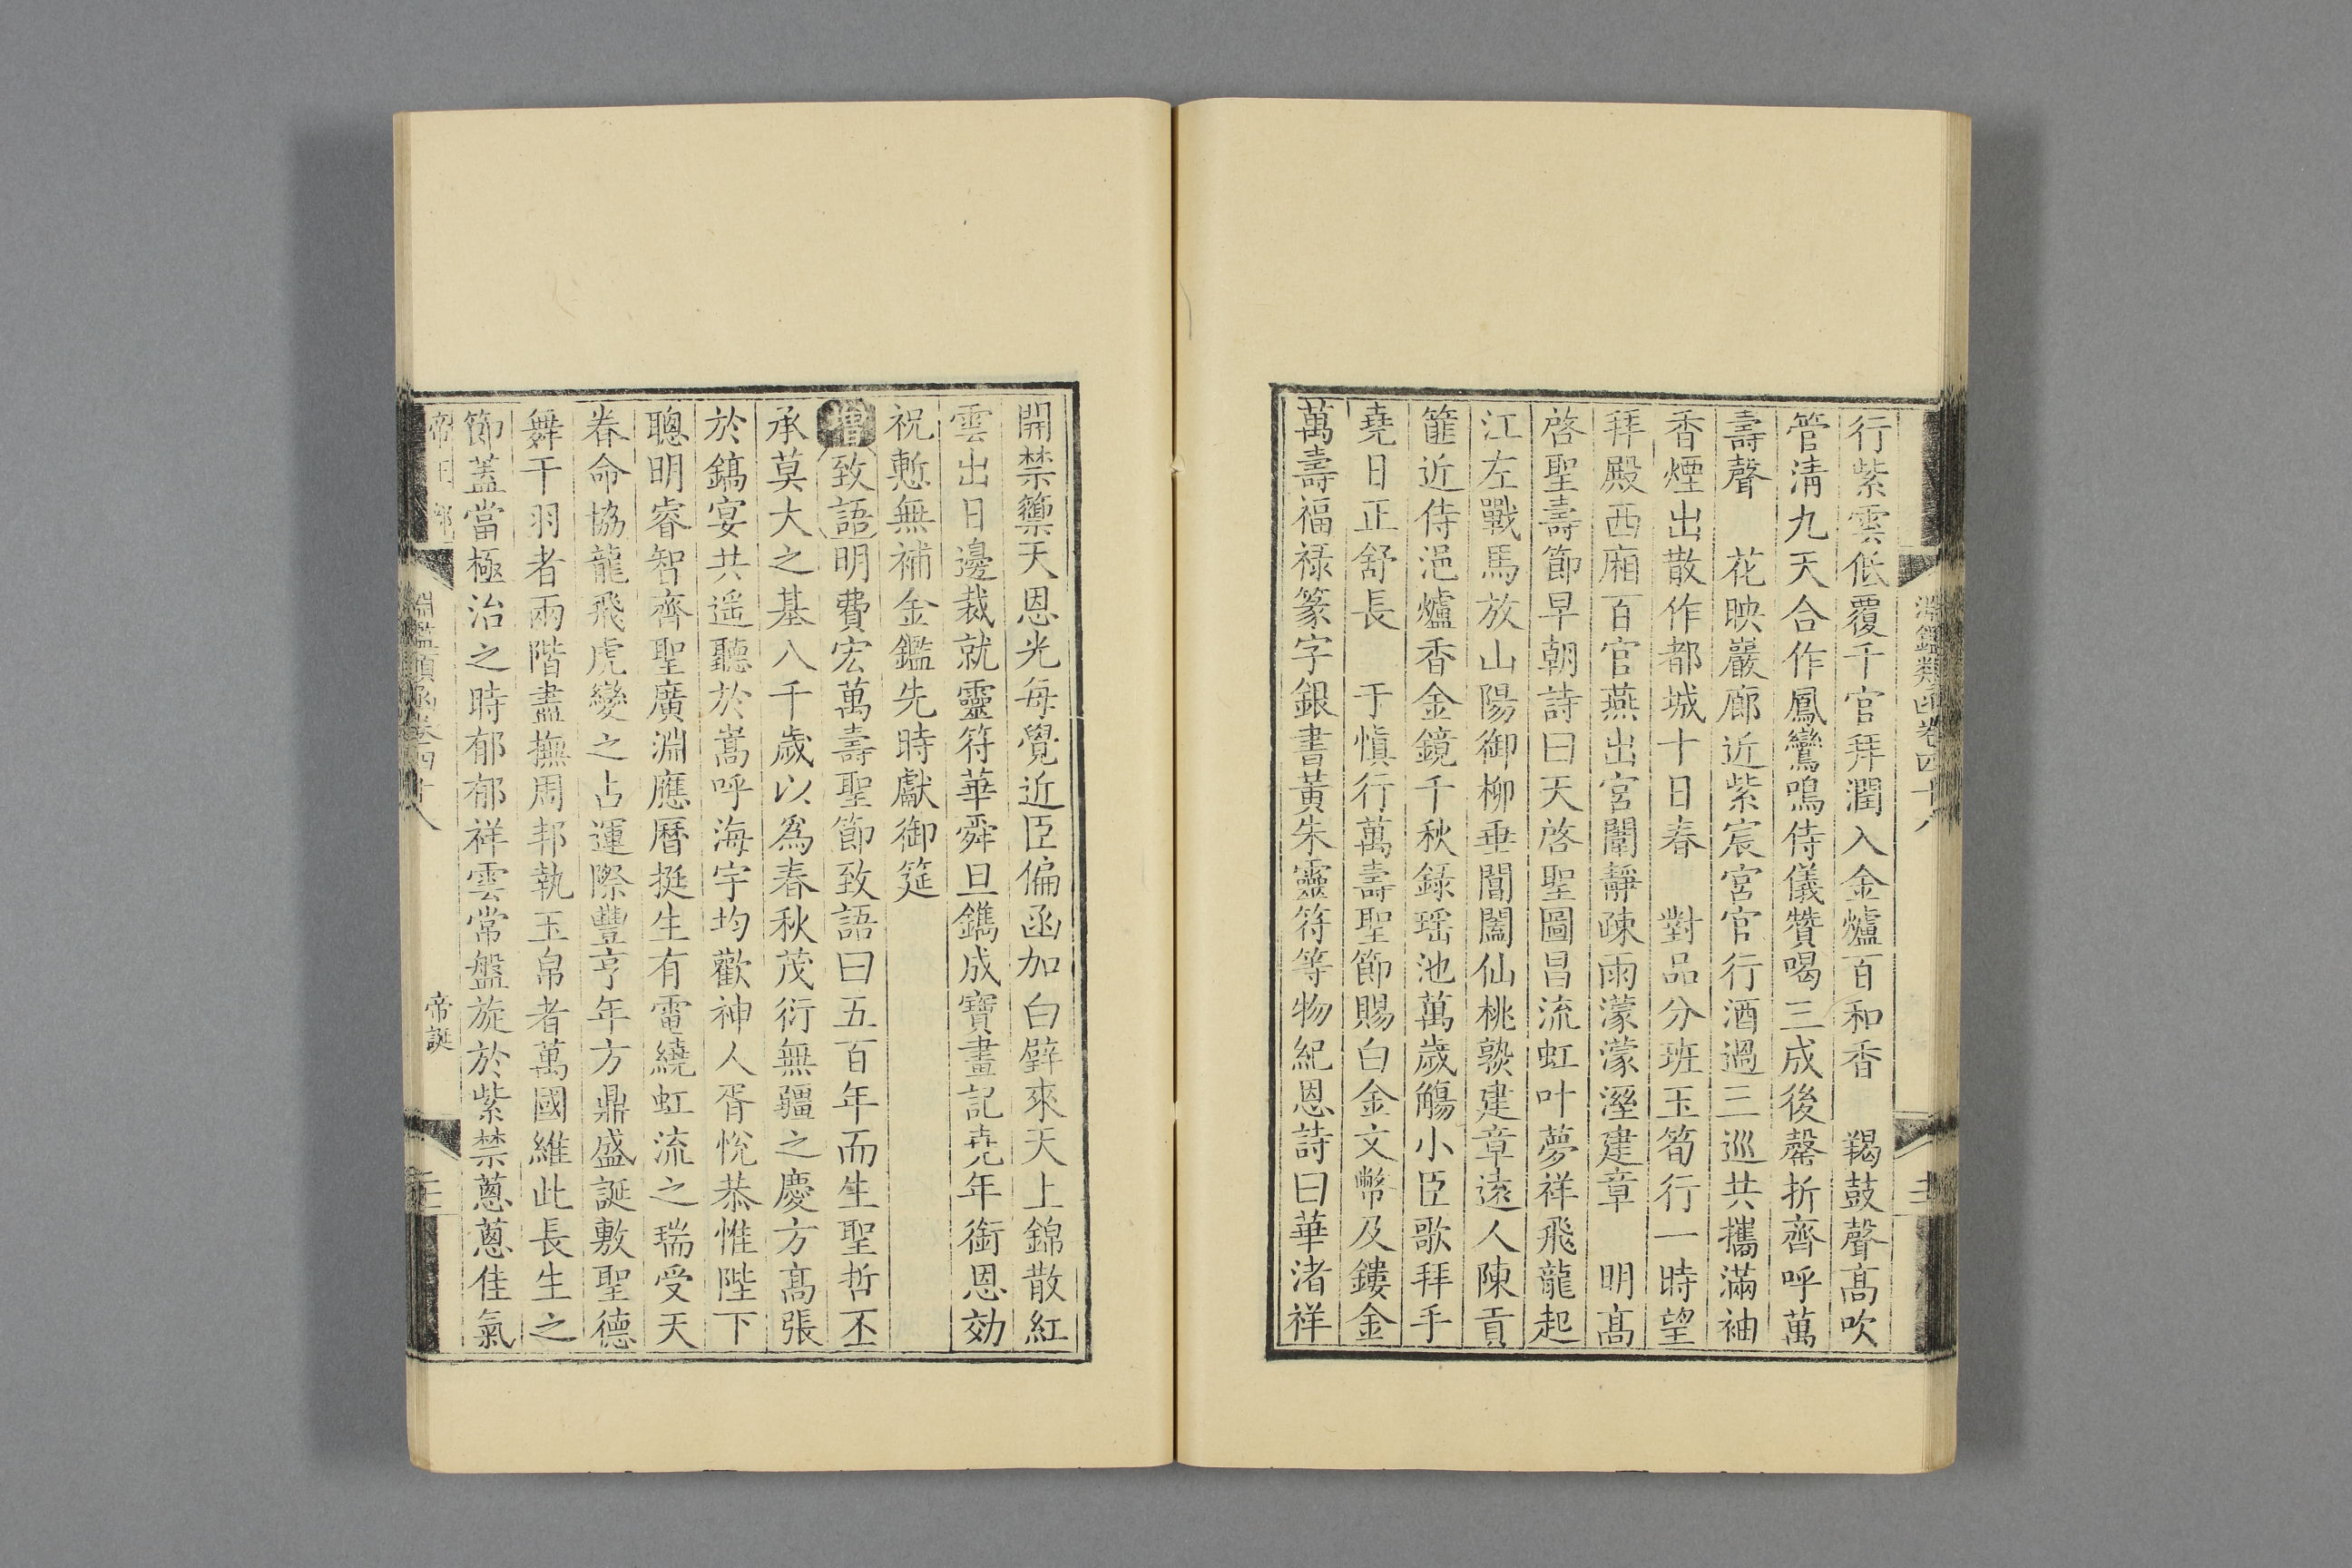 淵鑑類函卷四十八
行紫雲低覆千官拜潤入金爐百和香　羯鼓聲高吹
管清九天合作鳳鸞鳴侍儀贊喝三成後罄折齊呼萬
壽聲　花映巖廊近紫宸宮官行酒過三巡共攜滿袖
香煙出散作都城十日春　對品分班玉筍行一時望
拜殿西廂百官燕出宮闈靜疎雨濛濛溼建章　明高
啓聖壽節早朝詩曰天啓聖圖昌流虹叶夢祥飛龍起
江左戰馬放山陽御柳垂閶闔仙桃熟建章遠人陳貢
篚近侍浥爐香金鏡千秋錄瑤池萬歲觴小臣歌拜手
堯日正舒長　于慎行萬壽聖節賜白金文幣及鏤金
萬壽福祿篆字銀書黃朱靈符等物紀恩詩曰華渚祥
開禁籞天恩光每覺近臣偏函加白璧來天上錦散紅
雲出日邊裁就靈符華舜旦鐫成寶畫記堯年銜恩効
祝慙無補金鑑先時獻御筵
增致語明費宏萬壽聖節致語曰五百年而生聖哲丕
承莫大之基八千歲以爲春秋茂衍無疆之慶方高張
於鎬宴共遥聽於嵩呼海宇均歡神人胥悅恭惟陛下
聰明睿智齊聖廣淵應曆挺生有電繞虹流之瑞受天
眷命協龍飛虎變之占運際豐亨年方鼎盛誕敷聖德
舞干羽者兩階盡撫周邦執玉帛者萬國維此長生之
節蓋當極治之時郁郁祥雲常盤旋於紫禁蔥蔥佳氣
帝王部
淵鑑類函卷四十八
帝誕